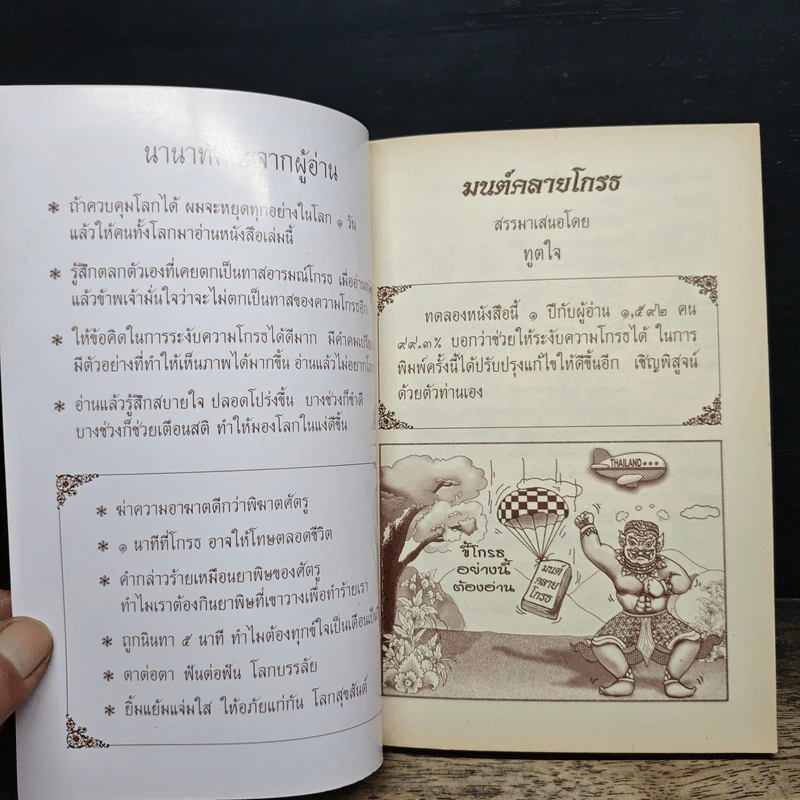 นานาทัศนะจากผู้อ่าน
* ถ้าควบคุมโลกได้ ผมจะหยุดทุกอย่างในโลก ๑ วัน
แล้วให้คนทั้งโลกมาอ่านหนังสือเล่มนี้
* รู้สึกตลกตัวเองที่เคยตกเป็นทาสอารมณ์โกรธ
แล้วข้าพเจ้ามั่นใจว่าจะไม่ตกเป็นทาสของความโกรธอีก
* ให้ข้อคิดในการระงับความโกรธได้ดีมาก
มีตัวอย่างที่ทำให้เห็นภาพได้มากขึ้น
* อ่านแล้วรู้สึกสบายใจ ปลอดโปร่งขึ้น บางช่วงก็ขำดี
บางช่วงก็ช่วยเตือนสติ ทำให้มองโลกในแง่ดีขึ้น
* ฆ่าความอาฆาตดีกว่าพิฆาตศัตรู
* ๑ นาทีที่โกรธ อาจให้โทษตลอดชีวิต
* คำกล่าวร้ายเหมือนยาพิษของศัตรู
ทำไมเราต้องกินยาพิษที่เขาวางเพื่อทำร้ายเรา
* ถูกนินทา ๕ นาที ทำไมต้องทุกข์ใจเป็นเดือนเป็น
* ตาต่อตา ฟันต่อฟัน โลกบรรลัย
* ยิ้มแย้มแจ่มใส ให้อภัยแก่กัน โลกสุขสันต์
มนต์คลายโกรธ
สรรมาเสนอโดย
ทูตใจ
ทดลองหนังสือนี้ ๑ ปีกับผู้อ่าน ๑,๕๙๒ คน
๙๙.๓% บอกว่าช่วยให้ระงับความโกรธได้ ในการ
พิมพ์ครั้งนี้ได้ปรับปรุงแก้ไขให้ดีขึ้นอีก เชิญพิสูจน์
ด้วยตัวท่านเอง
THAILAND
ขี้โกรธ
อย่างนี้
ต้องอ่าน
มนต์
คลาย
โกรธ